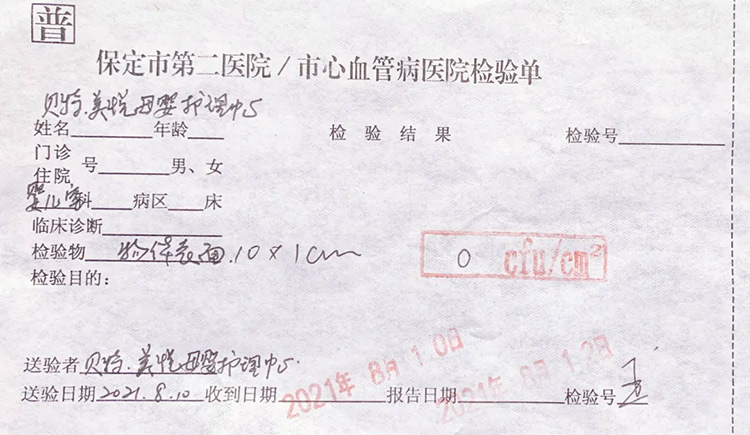 普
保定市第二医院/市心血管病医院检验单
贝特.美悦母婴护理中心
姓名 年龄 检验结果 检验号
门诊
住院 号 男、女
婴儿室科 病区 床
临床诊断
检验物 物体表面.10×1cm
0 cfu/cm²
检验目的:
送验者 贝特.美悦母婴护理中心
送验日期 2021.8.10 收到日期 2021年 8月 10日 报告日期 2021年 8月 12日 检验号